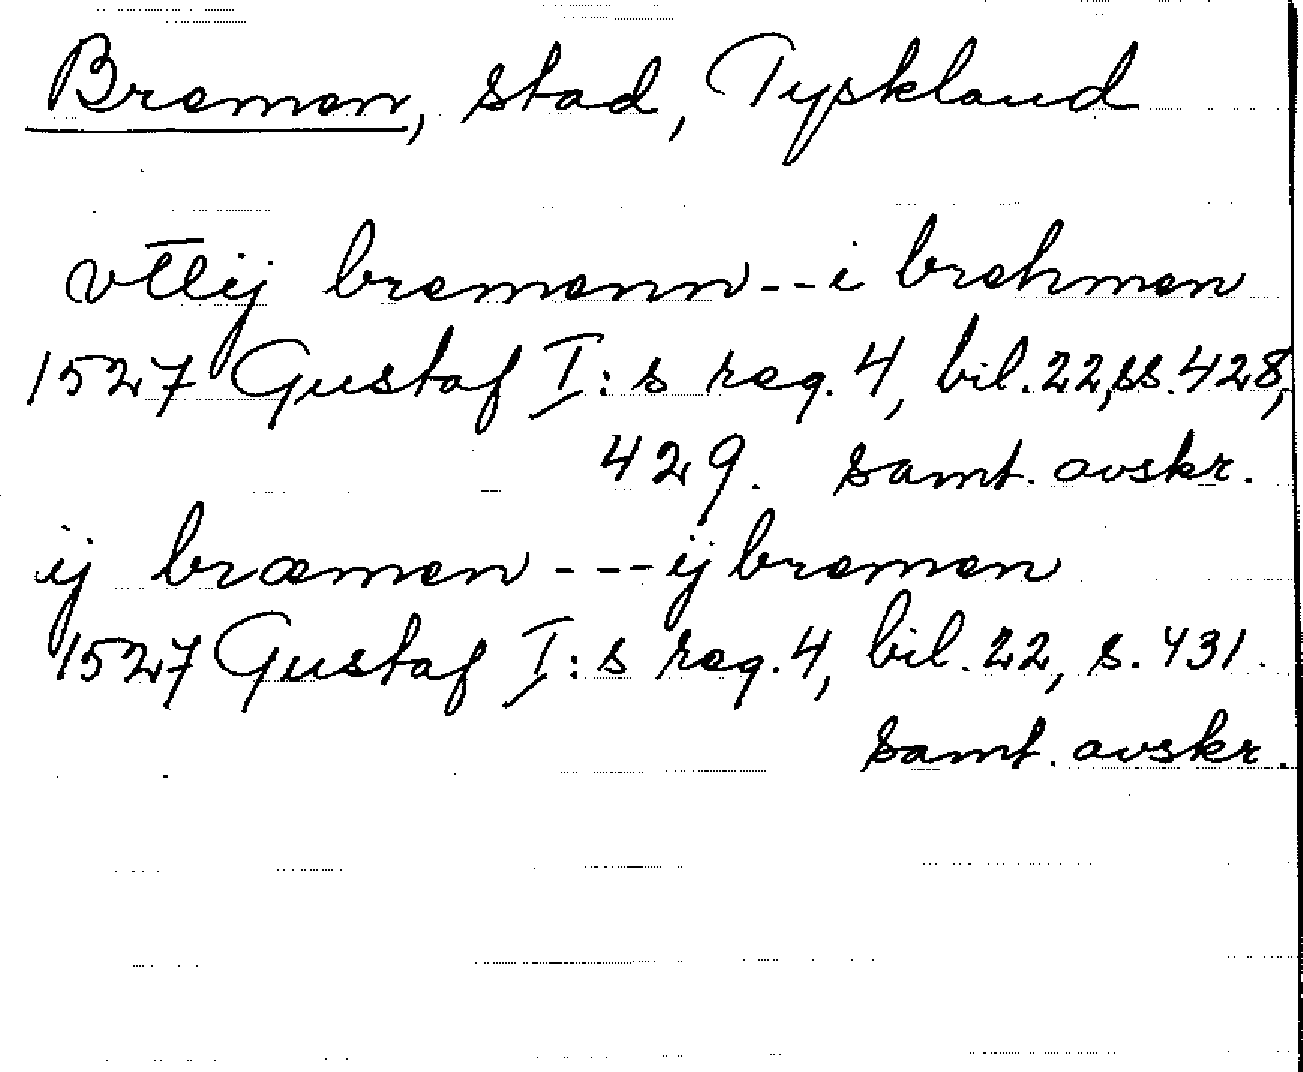 Bremen, stad, Tyskland
vtlij bremenn--i brehmen
1527 Gustaf I:s reg. 4, bil. 22, ss. 428,
429. samt. avskr.
ij bræmen---ij bremen
1527 Gustaf I:s reg. 4, bil. 22, s. 431.
samt. avskr.